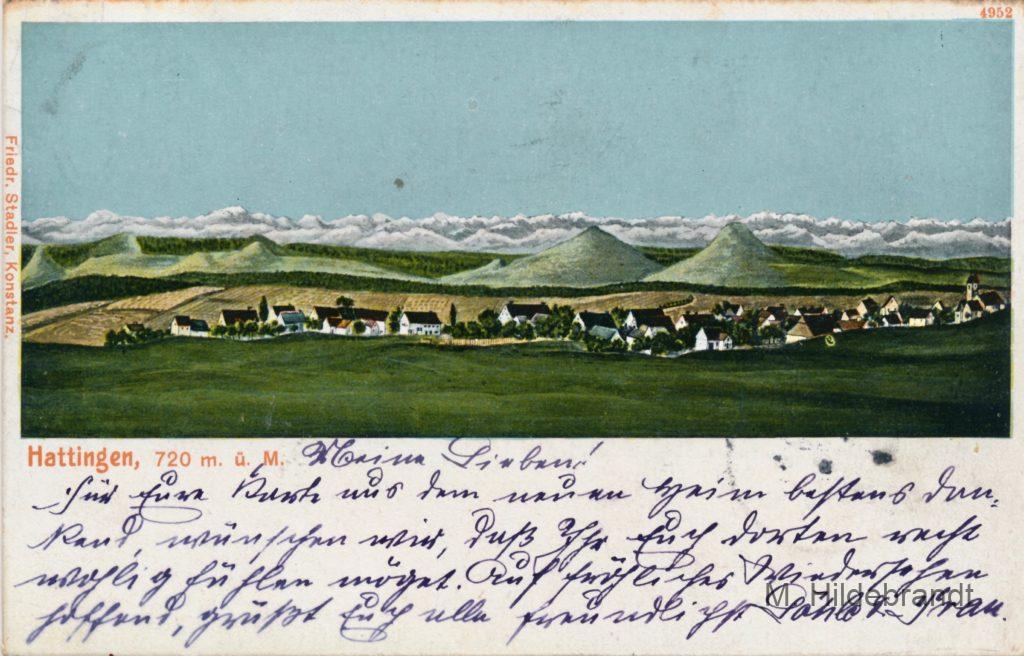 4952
Friedr. Stadler, Konstanz.
Hattingen, 720 m. ü. M. Meine Lieben!
Für Eure Karte aus dem neuen Heim bestens dan-
kend, wünschen wir, daß Ihr Euch dorten recht
wohlig fühlen möget. Auf fröhliches Wiedersehen
hoffend, grüßt Euch alle freundlichst
M. Hildebrandt